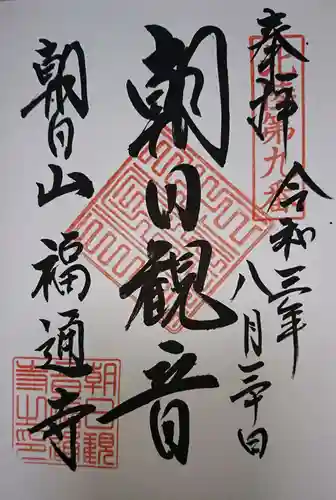 奉拝
令和三年
八月二十日
朝日観音
朝日山 福通寺
北陸第九番